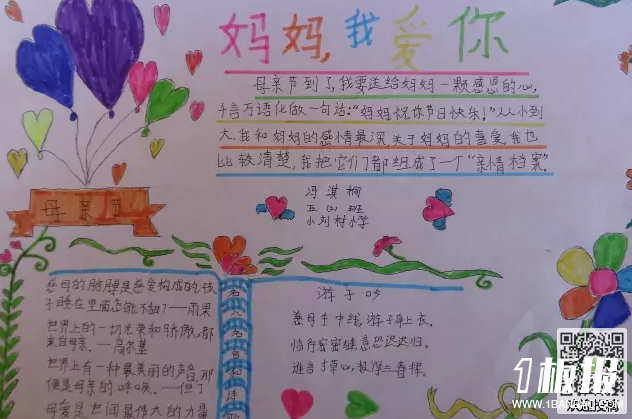 妈妈,我爱你
母亲节到了,我要送给妈妈一颗感恩的心,
千言万语化做一句话:“妈妈祝你节日快乐!”从小到
大我和妈妈的感情最深关于妈妈的喜爱我也
比较清楚,我把它们都组成了一个“亲情档案”。
冯淇桐
五(4)班
小刘村小学
母亲节
慈母的胳膊是慈爱构成的,孩
子睡在里面怎能不甜?——雨果
世界上的一切光荣和骄傲,都
来自母亲。——高尔基
世界上有一种最美丽的声音,那
便是母亲的呼唤。——但丁
母爱是世间最伟大的力量
名人名言
游子吟
慈母手中线,游子身上衣。
临行密密缝,意恐迟迟归。
谁言寸草心,报得三春晖。
1板报
WWW.1BANBAO.COM